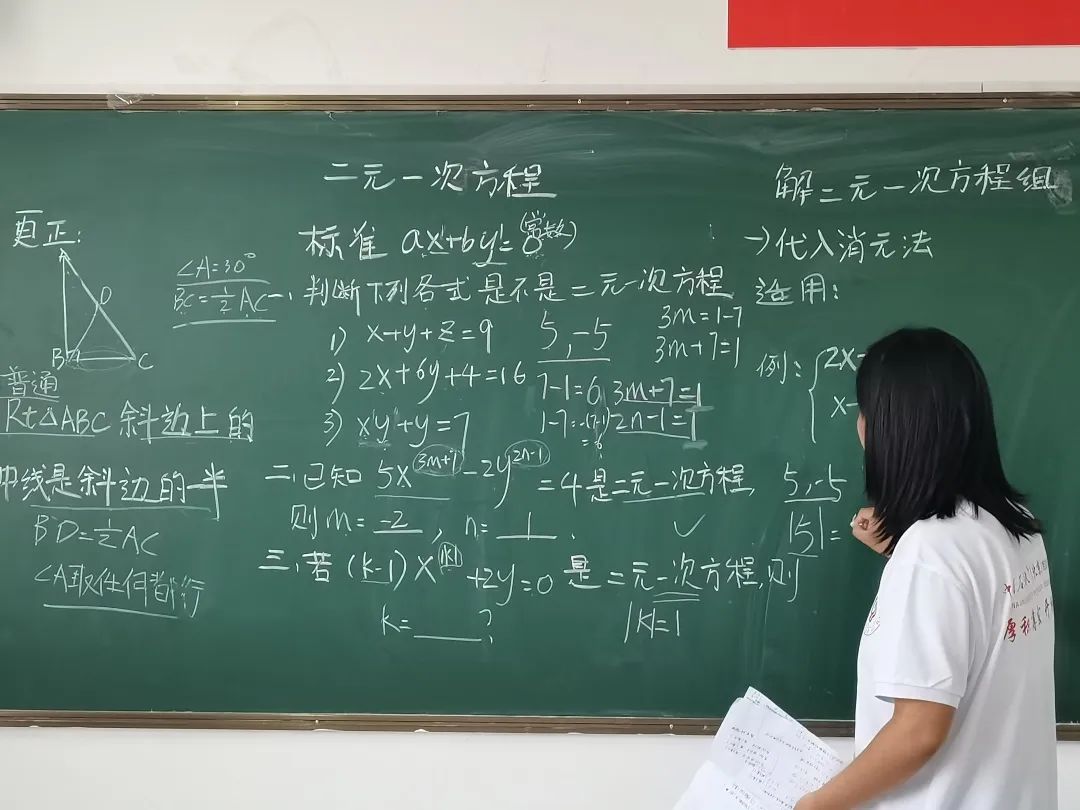 更正:
B
C
D
∠A=30°
BC=½AC
普通
Rt△ABC 斜边上的
中线是斜边的一半
BD=½AC
∠A取任何都行
二元一次方程
标准 ax¹+by¹=8(常数)
一、判断下列各式是不是二元一次方程
1) x+y+z=9
2) 2x+6y+4=16
3) xy+y=7
5,-5
7-1=6
1-7=-(7-1)
=-6
3m=1-7
3m+7=1
3m+7=1
2n-1=1
二、已知 5x^(3m+7)-2y^(2n-1)=4是二元一次方程,
则m=-2,n=1.
三、若(k-1)x^|k|+2y=0是二元一次方程,则
k=____?
|k|=1
解二元一次方程组
→代入消元法
适用:
例:{2x-
x-
5,-5
|5|=